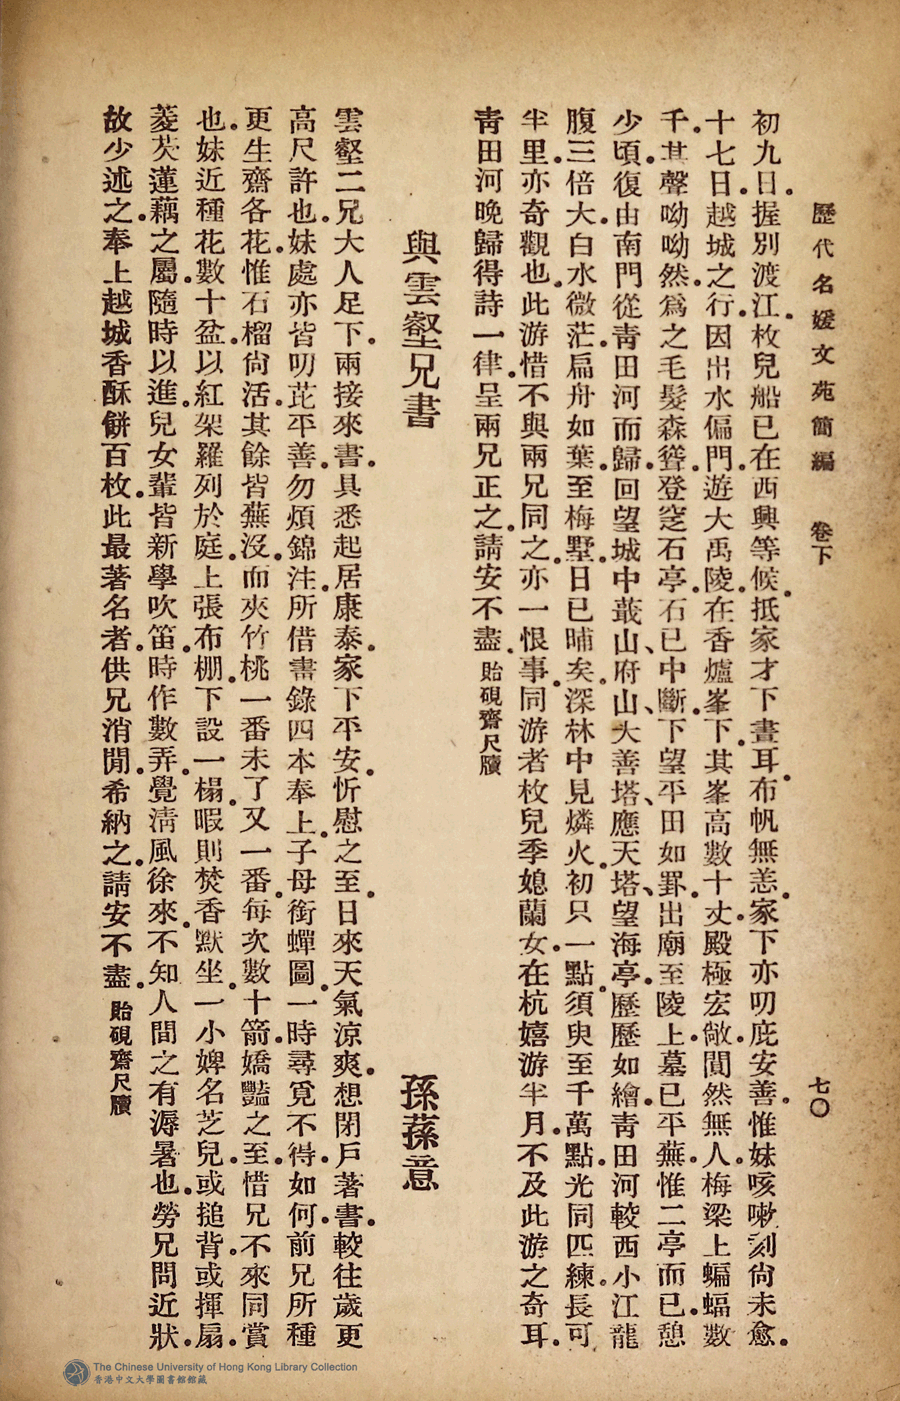 歷代名媛文苑簡編　卷下　七〇
初九日．握別渡江．枚兒船已在西興等候．抵家才下晝耳．布帆無恙．家下亦叨庇安善．惟妹咳嗽刻尙未愈．
十七日．越城之行．因出水偏門．遊大禹陵．在香爐峯下．其峯高數十丈．殿極宏敞．闃然無人．梅梁上蝙蝠數
千．其聲呦呦然．爲之毛髮森聳．登窆石亭．石已中斷．下望平田如罫．出廟至陵上．墓已平蕪．惟二亭而已．憩
少頃．復由南門從靑田河而歸．回望城中蕺山、府山、大善塔、應天塔、望海亭．歷歷如繪．靑田河較西小江龍
腹三倍大．白水微茫．扁舟如葉．至梅墅．日已晡矣．深林中見燐火．初只一點．須臾至千萬點．光同匹練．長可
半里．亦奇觀也．此游惜不與兩兄同之．亦一恨事．同游者枚兒季媳蘭女．在杭嬉游半月．不及此游之奇耳．
靑田河晚歸得詩一律．呈兩兄正之．請安不盡．貽硯齋尺牘
與雲壑兄書　孫蓀意
雲壑二兄大人足下．兩接來書．具悉起居康泰．家下平安．忻慰之至．日來天氣涼爽．想閉戶著書．較往歲更
高尺許也．妹處亦皆叨芘平善．勿煩錦注．所借書錄四本奉上．子母銜蟬圖．一時尋覓不得．如何．前兄所種
更生齋各花．惟石榴尙活．其餘皆蕪沒．而夾竹桃一番未了又一番．每次數十箭．嬌豔之至．惜兄不來同賞
也．妹近種花數十盆．以紅架羅列於庭．上張布棚．下設一榻．暇則焚香默坐．一小婢名芝兒．或搥背．或揮扇．
菱芡蓮藕之屬．隨時以進．兒女輩皆新學吹笛．時作數弄．覺淸風徐來．不知人間之有溽暑也．勞兄問近狀．
故少述之．奉上越城香酥餠百枚．此最著名者．供兄消閒．希納之．請安不盡．貽硯齋尺牘
The Chinese University of Hong Kong Library Collection
香港中文大學圖書館館藏